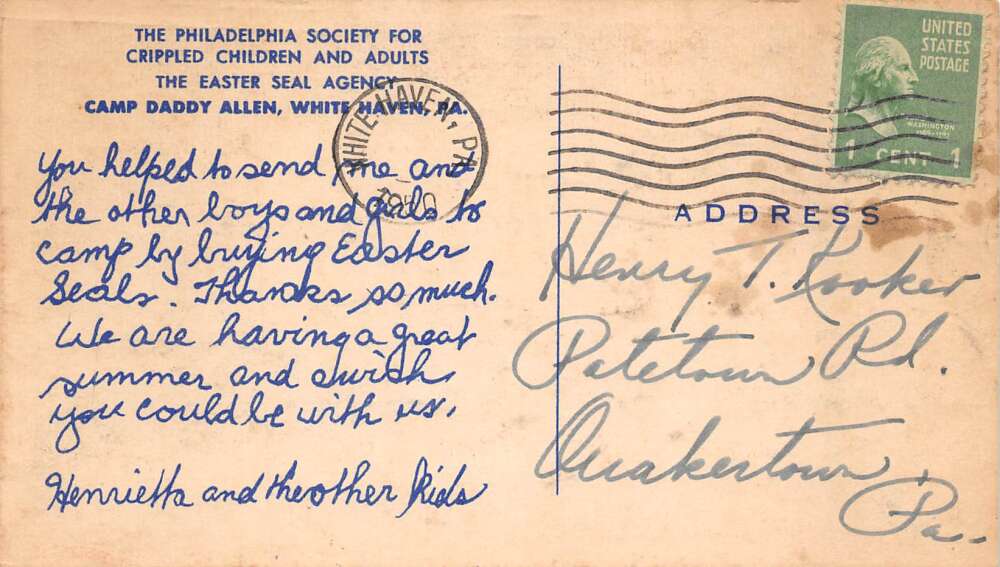 THE PHILADELPHIA SOCIETY FOR
CRIPPLED CHILDREN AND ADULTS
THE EASTER SEAL AGENCY
CAMP DADDY ALLEN, WHITE HAVEN, PA.
You helped to send me and
the other boys and girls to
camp by buying Easter
Seals. Thanks so much.
We are having a great
summer and wish
you could be with us.
Henrietta and the other kids
WHITE HAVEN, PA.
UNITED
STATES
POSTAGE
WASHINGTON
1 CENT 1
ADDRESS
Henry T. Kooker
Patetown Rd.
Quakertown
Pa.